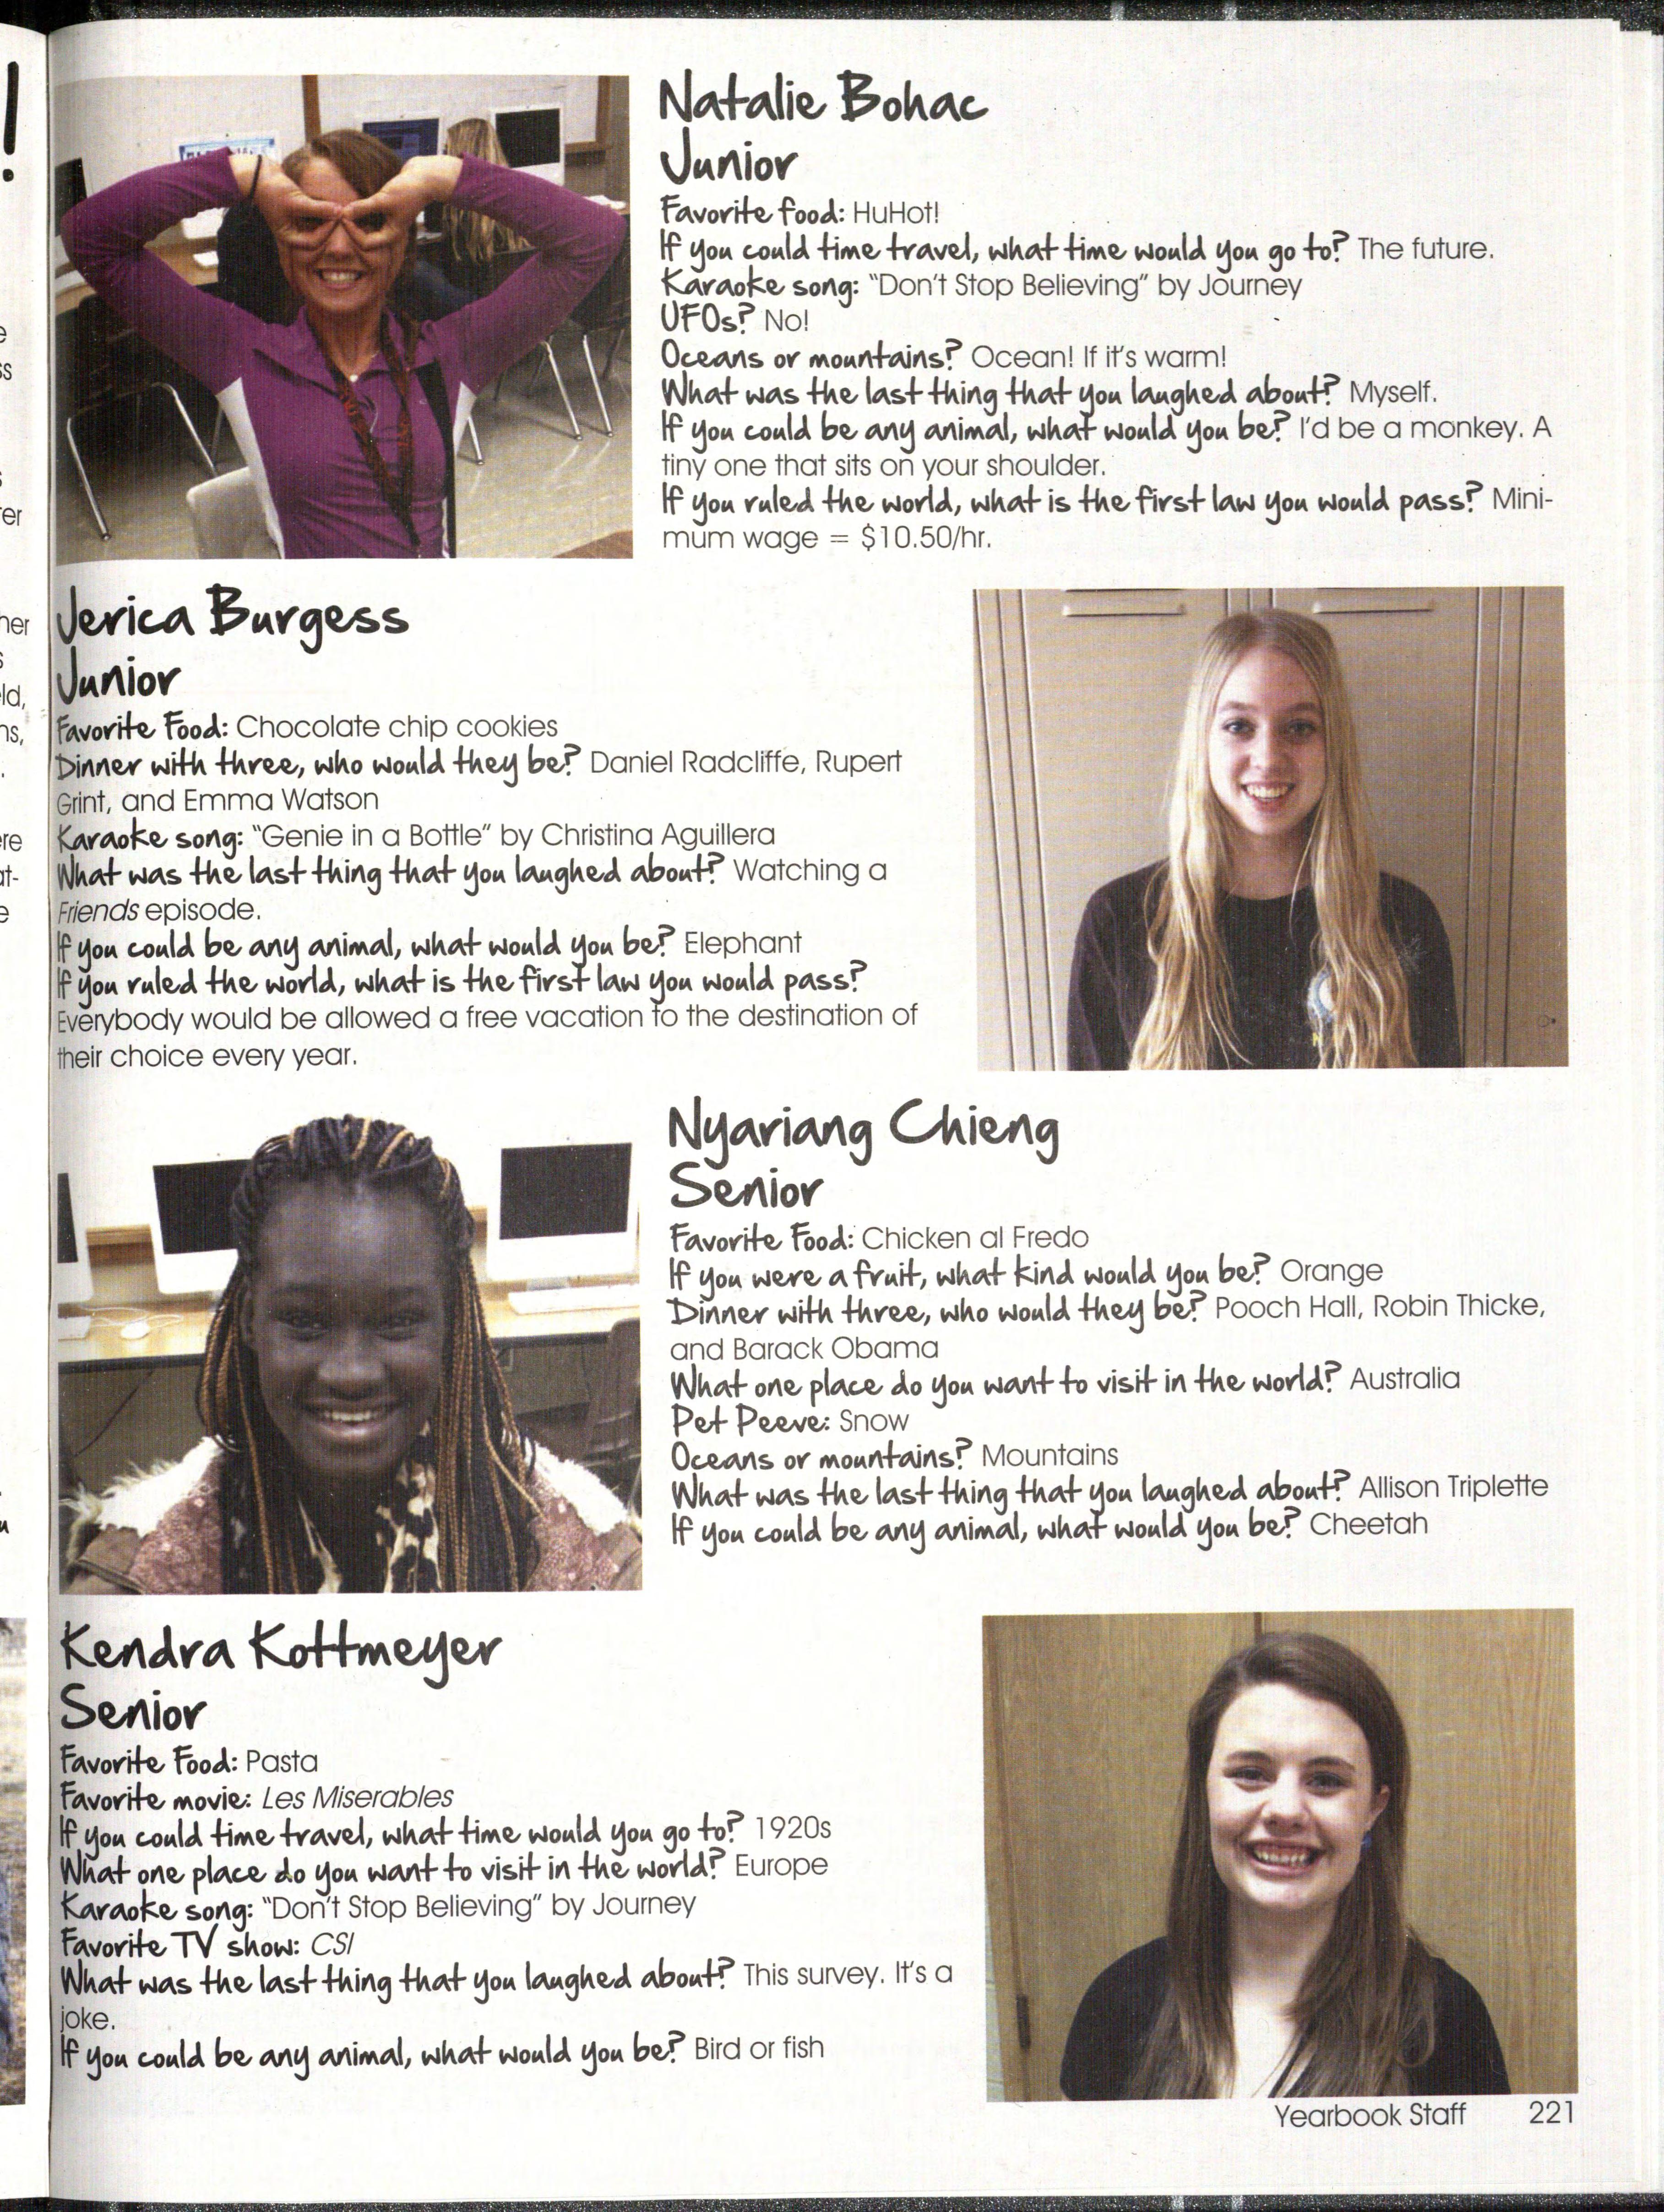 Natalie Bohac
Junior
Favorite food: HuHot!
If you could time travel, what time would you go to? The future.
Karaoke song: "Don't Stop Believing" by Journey
UFOs? No!
Oceans or mountains? Ocean! If it's warm!
What was the last thing that you laughed about? Myself.
If you could be any animal, what would you be? I'd be a monkey. A
tiny one that sits on your shoulder.
If you ruled the world, what is the first law you would pass? Mini-
mum wage = $10.50/hr.
Jerica Burgess
Junior
Favorite Food: Chocolate chip cookies
Dinner with three, who would they be? Daniel Radcliffe, Rupert
Grint, and Emma Watson
Karaoke song: "Genie in a Bottle" by Christina Aguillera
What was the last thing that you laughed about? Watching a
Friends episode.
If you could be any animal, what would you be? Elephant
If you ruled the world, what is the first law you would pass?
Everybody would be allowed a free vacation to the destination of
their choice every year.
Nyariang Chieng
Senior
Favorite Food: Chicken al Fredo
If you were a fruit, what kind would you be? Orange
Dinner with three, who would they be? Pooch Hall, Robin Thicke,
and Barack Obama
What one place do you want to visit in the world? Australia
Pet Peeve: Snow
Oceans or mountains? Mountains
What was the last thing that you laughed about? Allison Triplette
If you could be any animal, what would you be? Cheetah
Kendra Kottmeyer
Senior
Favorite Food: Pasta
Favorite movie: Les Miserables
If you could time travel, what time would you go to? 1920s
What one place do you want to visit in the world? Europe
Karaoke song: "Don't Stop Believing" by Journey
Favorite TV show: CSI
What was the last thing that you laughed about? This survey. It's a
joke.
If you could be any animal, what would you be? Bird or fish
Yearbook Staff 221